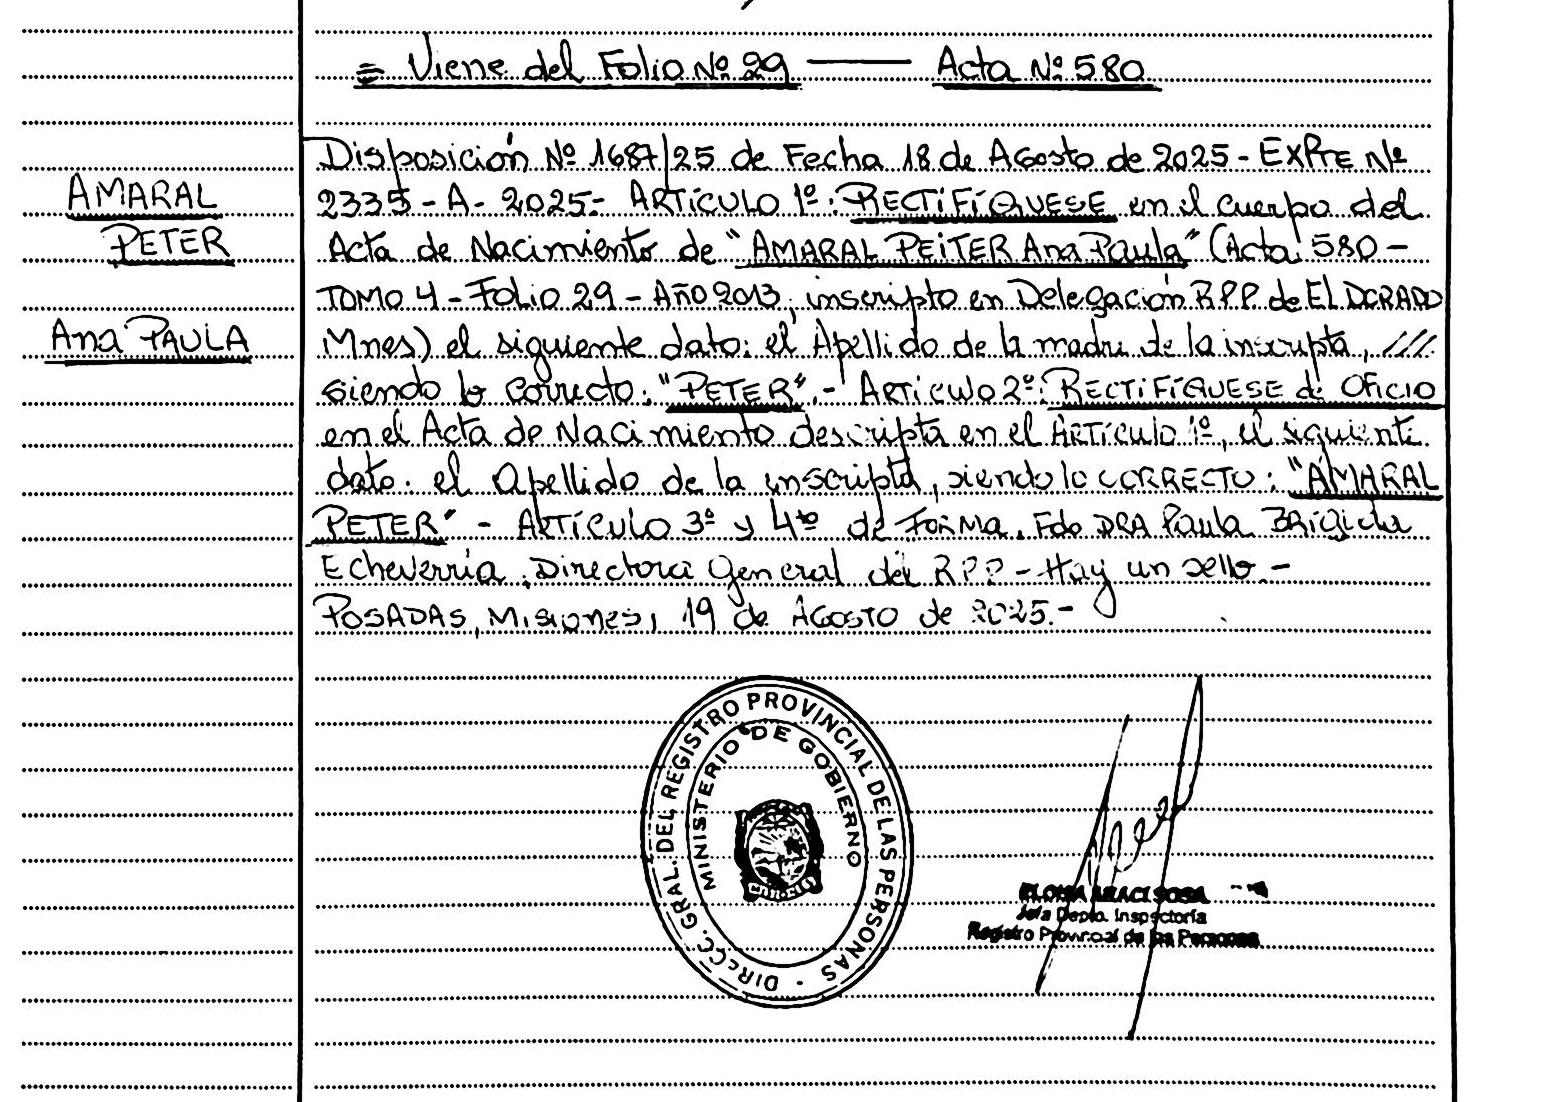 = Viene del Folio Nº 29 —— Acta Nº 580
AMARAL
PETER
Ana PAULA
Disposición Nº 1687/25 de Fecha 18 de Agosto de 2025 - EXPTE Nº
2335 - A - 2025.- ARTÍCULO 1º: RECTIFÍQUESE en el cuerpo del
Acta de Nacimiento de "AMARAL PEITER Ana Paula" (Acta 580 -
TOMO 4 - Folio 29 - AÑO 2013, inscripto en Delegación R.P.P. de EL DORADO
Mnes) el siguiente dato: el Apellido de la madre de la inscripta, ////
siendo lo correcto: "PETER".- ARTÍCULO 2º: RECTIFÍQUESE de OFICIO
en el Acta de Nacimiento descripta en el ARTÍCULO 1º, el siguiente
dato. el Apellido de la inscripta, siendo lo CORRECTO: "AMARAL
PETER" - ARTÍCULO 3º y 4to de FORMA. Fdo DRA Paula BRígida
Echeverría, Directora General del RPP - Hay un sello -
POSADAS, Misiones, 19 de AGOSTO de 2025.-
DIRECC. GRAL. DEL REGISTRO PROVINCIAL DE LAS PERSONAS
MINISTERIO DE GOBIERNO
ARACI SOSA
Jefa Depto. Inspectoría
Registro Provincial de las Personas